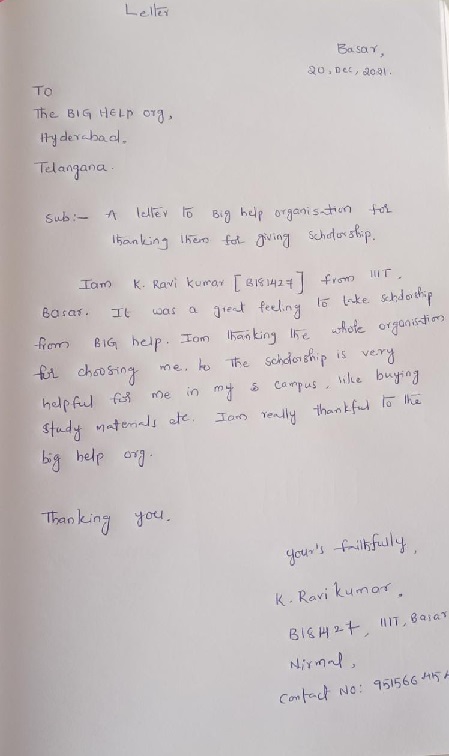 Letter
Basar,
20, Dec, 2021.
TO
The BIG HELP org,
Hyderabad.
Telangana.
Sub:- A letter to Big help organisation for
thanking them for giving scholorship.
Iam K. Ravi Kumar [B181427] from IIIT.
Basar. It was a great feeling to take scholorship
from BIG help. Iam thanking the whole organisation
for choosing me. The scholorship is very
helpful for me in my campus. like buying
study materials etc. Iam really thankful to the
big help org.
Thanking you.
your's faithfully,
K. Ravi kumar.
B181427, IIIT, Basar
Nirmal,
Contact No: